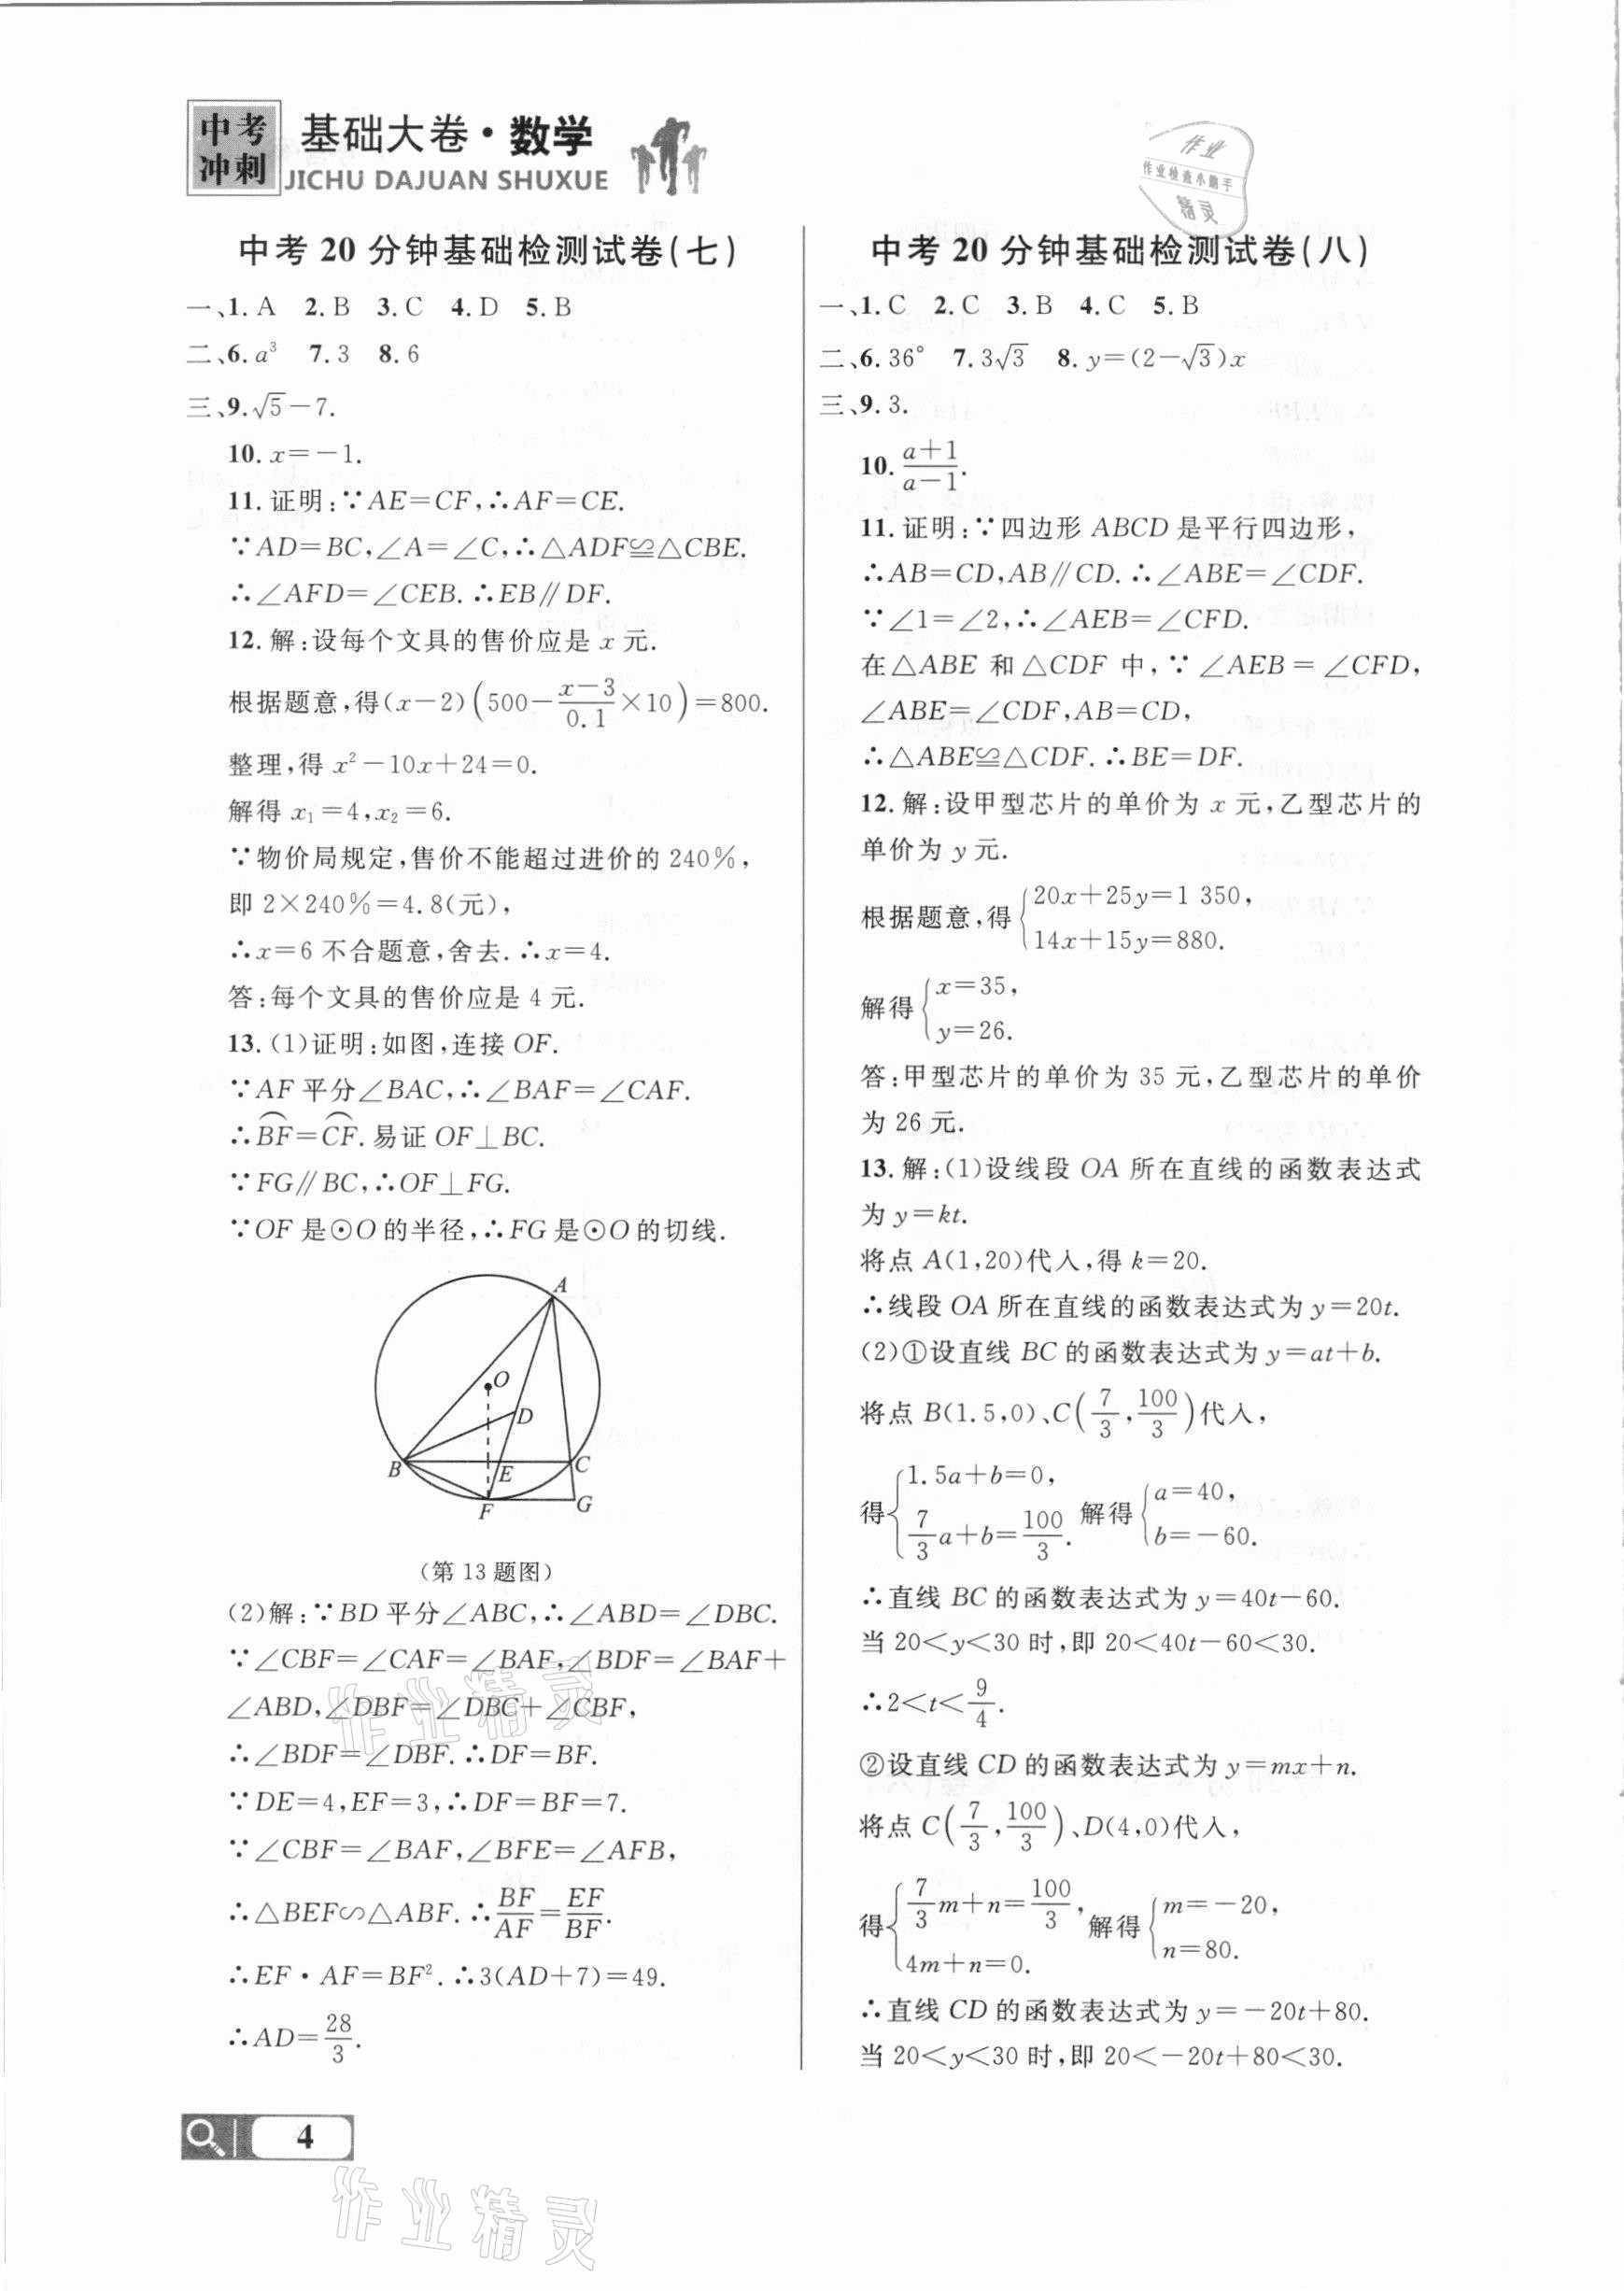 中考
冲刺
基础大卷·数学
JICHU DAJUAN SHUXUE
作业
作业检查小助手
精灵
中考 20 分钟基础检测试卷(七)
一、1. A 2. B 3. C 4. D 5. B
二、6. a³ 7. 3 8. 6
三、9. √5－7.
10. x=－1.
11. 证明:∵AE=CF,∴AF=CE.
∵AD=BC,∠A=∠C,∴△ADF≌△CBE.
∴∠AFD=∠CEB.∴EB∥DF.
12. 解:设每个文具的售价应是 x 元.
根据题意,得(x－2)(500－(x－3)/0.1×10)=800.
整理,得 x²－10x＋24=0.
解得 x₁=4,x₂=6.
∵物价局规定,售价不能超过进价的 240%,
即 2×240%=4.8(元),
∴x=6 不合题意,舍去.∴x=4.
答:每个文具的售价应是 4 元.
13. (1)证明:如图,连接 OF.
∵AF 平分∠BAC,∴∠BAF=∠CAF.
∴B͡F=C͡F.易证 OF⊥BC.
∵FG∥BC,∴OF⊥FG.
∵OF 是⊙O 的半径,∴FG 是⊙O 的切线.
A
O
D
B
E
C
F
G
(第 13 题图)
(2)解:∵BD 平分∠ABC,∴∠ABD=∠DBC.
∵∠CBF=∠CAF=∠BAF,∠BDF=∠BAF＋
∠ABD,∠DBF=∠DBC＋∠CBF,
∴∠BDF=∠DBF.∴DF=BF.
∵DE=4,EF=3,∴DF=BF=7.
∵∠CBF=∠BAF,∠BFE=∠AFB,
∴△BEF∽△ABF.∴BF/AF=EF/BF.
∴EF·AF=BF².∴3(AD＋7)=49.
∴AD=28/3.
中考 20 分钟基础检测试卷(八)
一、1. C 2. C 3. B 4. C 5. B
二、6. 36° 7. 3√3 8. y=(2－√3)x
三、9. 3.
10. (a＋1)/(a－1).
11. 证明:∵四边形 ABCD 是平行四边形,
∴AB=CD,AB∥CD.∴∠ABE=∠CDF.
∵∠1=∠2,∴∠AEB=∠CFD.
在△ABE 和△CDF 中,∵∠AEB=∠CFD,
∠ABE=∠CDF,AB=CD,
∴△ABE≌△CDF.∴BE=DF.
12. 解:设甲型芯片的单价为 x 元,乙型芯片的
单价为 y 元.
根据题意,得{20x＋25y=1 350,
14x＋15y=880.
解得{x=35,
y=26.
答:甲型芯片的单价为 35 元,乙型芯片的单价
为 26 元.
13. 解:(1)设线段 OA 所在直线的函数表达式
为 y=kt.
将点 A(1,20)代入,得 k=20.
∴线段 OA 所在直线的函数表达式为 y=20t.
(2)①设直线 BC 的函数表达式为 y=at＋b.
将点 B(1.5,0)、C(7/3,100/3)代入,
得{1.5a＋b=0,
7/3a＋b=100/3. 解得{a=40,
b=－60.
∴直线 BC 的函数表达式为 y=40t－60.
当 20<y<30 时,即 20<40t－60<30.
∴2<t<9/4.
②设直线 CD 的函数表达式为 y=mx＋n.
将点 C(7/3,100/3)、D(4,0)代入,
得{7/3m＋n=100/3,
4m＋n=0. 解得{m=－20,
n=80.
∴直线 CD 的函数表达式为 y=－20t＋80.
当 20<y<30 时,即 20<－20t＋80<30.
作业精灵
4
作业精灵